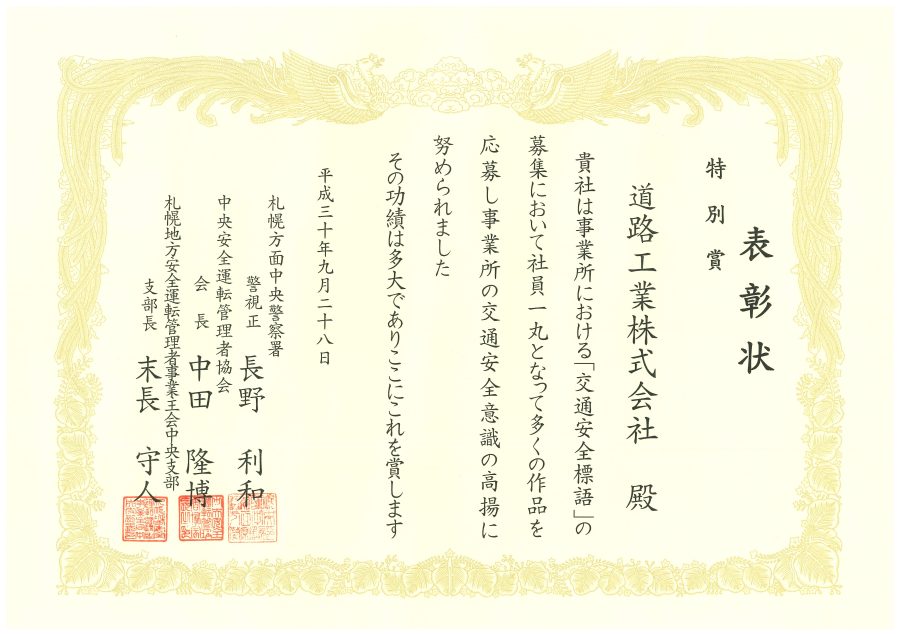 表彰状
特別賞
道路工業株式会社 殿
貴社は事業所における「交通安全標語」の
募集において社員一丸となって多くの作品を
応募し事業所の交通安全意識の高揚に
努められました
その功績は多大でありここにこれを賞します
平成三十年九月二十八日
札幌方面中央警察署
警視正 長野 利和
中央安全運転管理者協会
会長 中田 隆博
札幌地方安全運転管理者事業主会中央支部
支部長 末長 守人